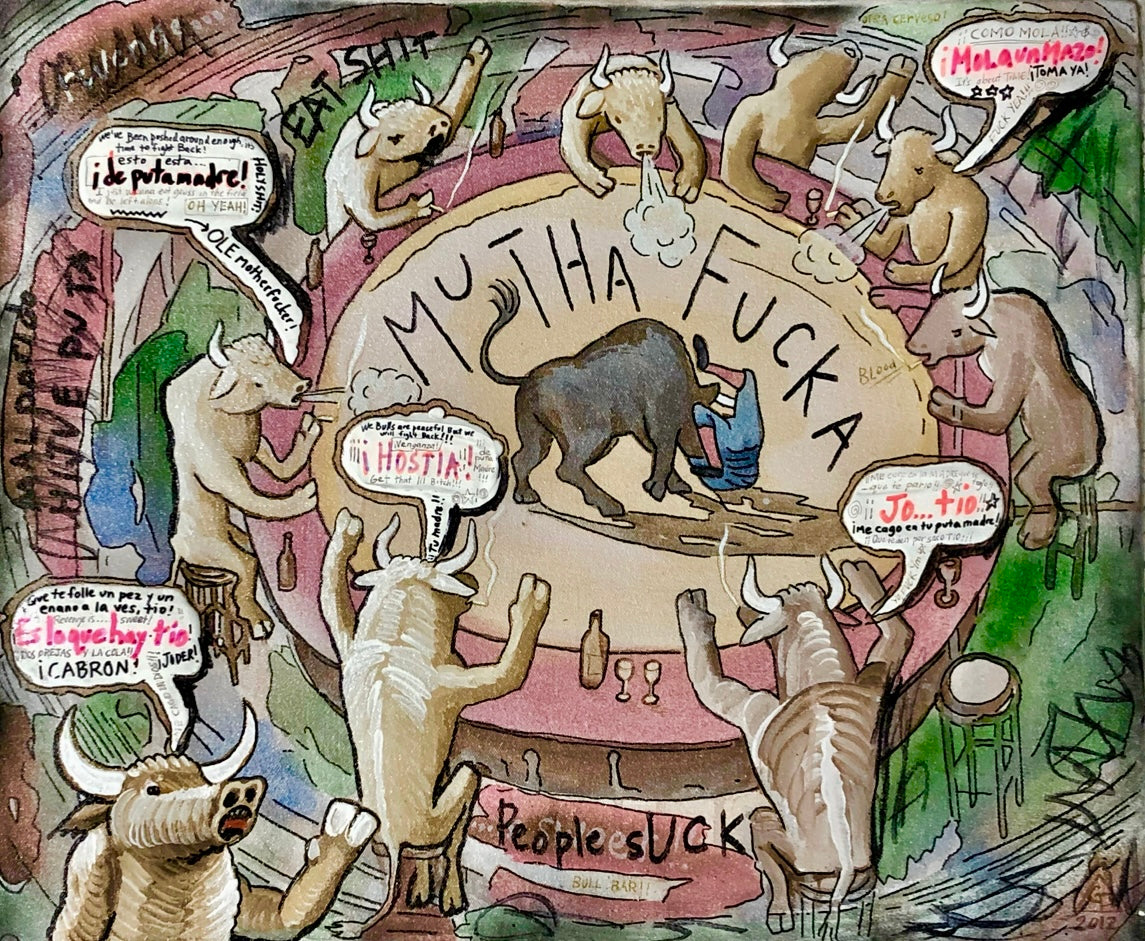 Otra cerveso!
¡¡COMO MOLA!!
¡Mola un Mazo!
It's about TIME!
¡TOMA YA!
FUCK YEAH!
EAT SHIT
we've Been pushed around enough, it's
time to fight Back!
esto esta...
¡de puta madre!
I just wanna eat grass in the field
and be left alone!
OH YEAH!
HOLY SHIT!
OLE motherfucker!
MUTHA FUCKA
BLOOD
We Bulls are peaceful But we
will fight Back!!!
¡Venganza!
¡HOSTIA!
de
puta
Madre
Get that !!! Bitch!!!
¡¡Tu madre!!
que te pario
¡¡ Jo...tio!!
¡Me cago en tu puta madre!
¡¡Que te den por saco TIO!!!
Que te folle un pez y un
enano a la ves, tio!
Revenge is.... sweet!
Es lo que hay tio
DOS OREJAS Y LA COLA!!
¡CABRON!
¡JODER!
PeoplesUCK
BULL BAR!!
2012